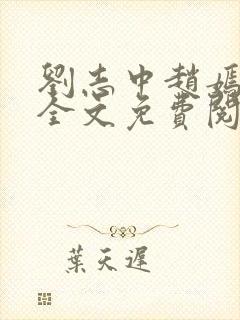 劉志中趙嫣
全文免費閱
葉天遲